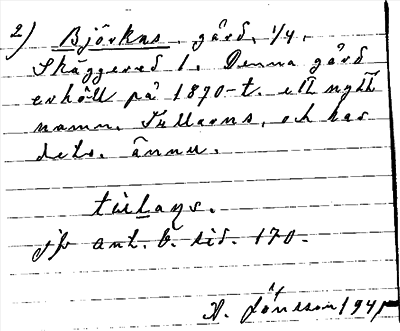 2) Björkås, gård, 1/4,
Skäggered 1. Denna gård
erhöll på 1870-t. ett nytt
namn. Tullarns, och har
dets. ännu.
jfr ant. b. sid. 170.
A. Jönsson 1941